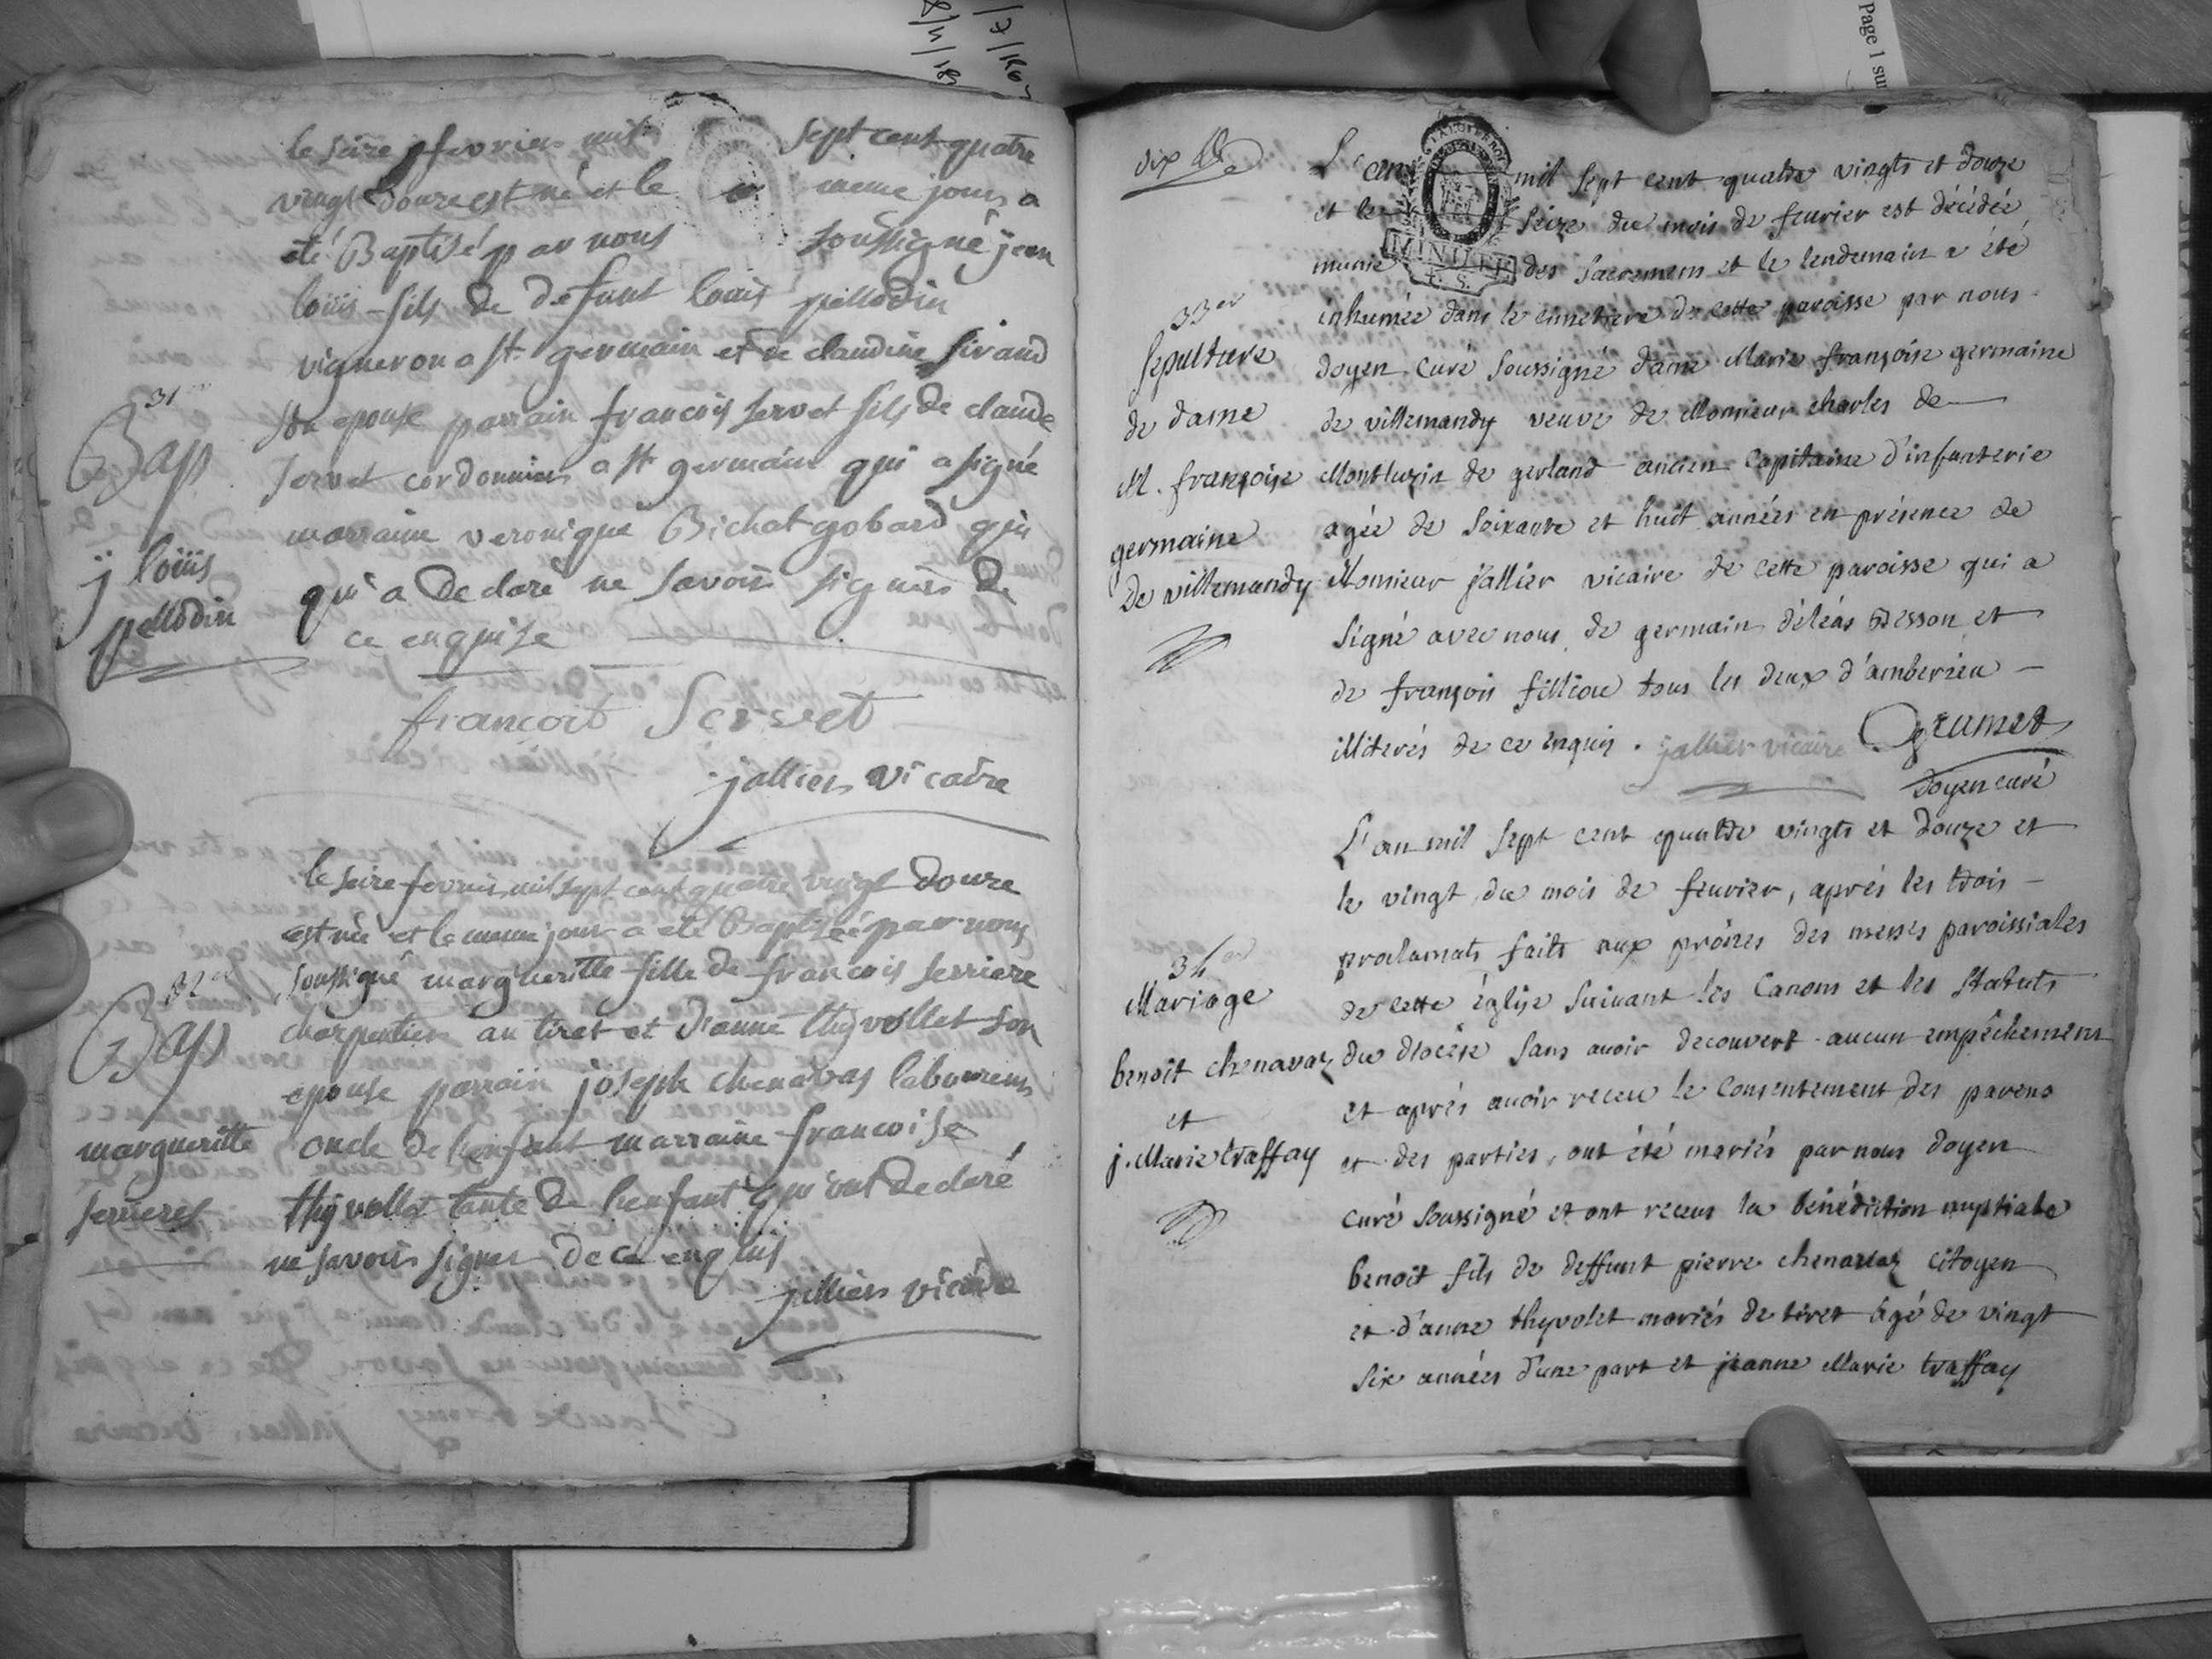 le seize fevrier mil sept cent quatre
vingt douze est né et le meme jour a
eté Baptisé par nous soussigné jean
loüis fils de defunt louis pellodin
vigneron a st germain et de claudine sirand
son epouse parrain francois servet fils de claude
servet cordonnier a st germain qui a signé
marraine veronique Bichat gobard qui
qui a declaré ne savoir signer de
ce enquise
31
Bap
j loüis
pellodin
francoit Servet
jallier vicaire
le seize fevrier mil sept cent quatre vingt douze
est née et le meme jour a eté Baptisée par nous
soussigné margueritte fille de francois serriere
charpentier au tiret et d'anne thyvollet son
epouse parrain joseph chenavas laboureur
oncle de l'enfant marraine francoise
thyvollet tante de l'enfant qui ont declaré
ne savoir signer de ce enquis
32
Bap
margueritte
jallier vicaire
dix
L'an mil sept cent quatre vingts et douze
et le seize du mois de feurier est décédée
munie des sacremens et le lendemain a été
inhumée dans le cimetiere de cette paroisse par nous
doyen curé soussigné dame Marie françoise germaine
de villemandy veuve de Monsieur charles de
Montluzin de gerland ancien capitaine d'infanterie
agée de soixante et huit années en présence de
Monsieur jallier vicaire de cette paroisse qui a
signé avec nous, de germain déléas Besson et
de françois filliou tous les deux d'amberieu
illiterés de ce enquis. jallier vicaire Grumet
doyen curé
33
sepulture
de dame
M. françoise
germaine
de villemandy
L'an mil sept cent quatre vingts et douze et
le vingt du mois de feurier, aprés les trois
proclamats faits aux prônes des messes paroissiales
de cette église suiuant les Canons et les statuts
du diocèse sans auoir decouvert aucun empêchement
et aprés auoir receu le consentement des parens
et des parties, ont été mariés par nous doyen
curé soussigné et ont receus la bénédiction nuptiale
benoit fils de deffunt pierre chenavaz citoyen
et d'anne thyvolet mariés de tiret âgé de vingt
six années d'une part et jeanne Marie traffay
34
Mariage
benoit chenavaz
et
j. Marie traffay
MINUTE
Page 1 sur